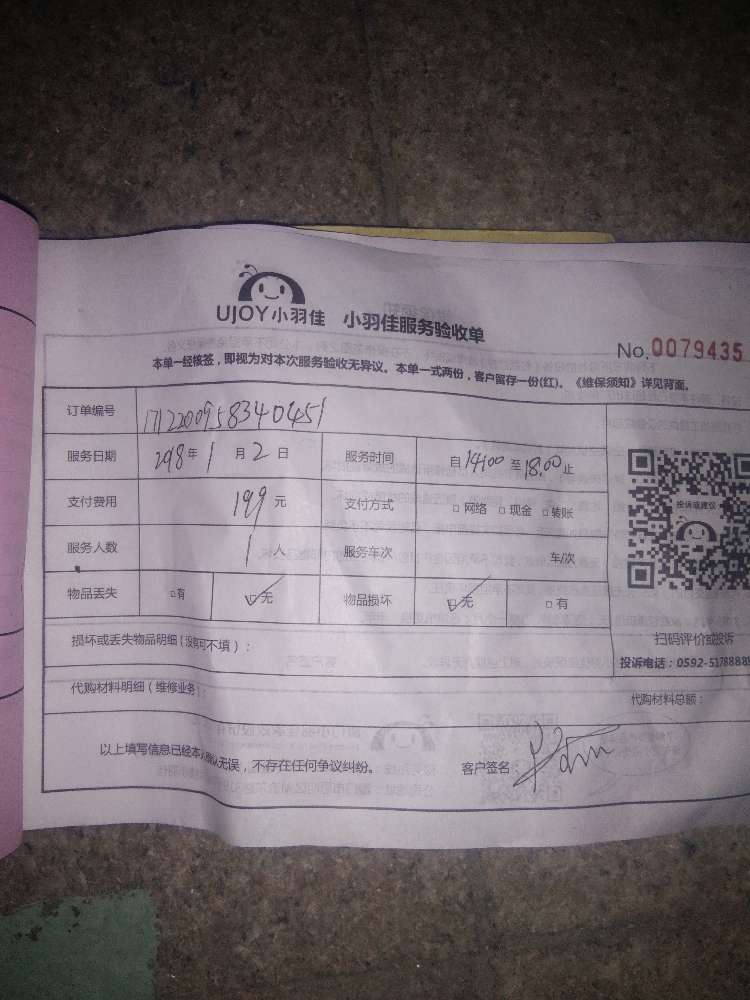 UJOY小羽佳 小羽佳服务验收单
No.0079435
本单一经核签，即视为对本次服务验收无异议。本单一式两份，客户留存一份(红)。《维保须知》详见背面。
订单编号 1712200958340451
服务日期 2018年1月2日 服务时间 自14:00至18:00止
支付费用 199元 支付方式 □网络 □现金 □转账
投诉或建议
服务人数 1人 服务车次 车/次
物品丢失 □有 ☑无 物品损坏 ☑无 □有
扫码评价或投诉
损坏或丢失物品明细(没有可不填)：
投诉电话：0592-5178888
代购材料明细(维修业务)： 代购材料总额：
以上填写信息已经本人确认无误，不存在任何争议纠纷。 客户签名：